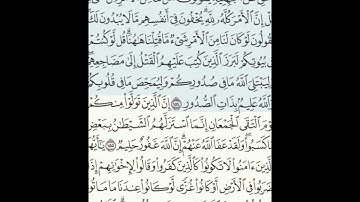 قُلْ إِنَّ ٱلْأَمْرَ كُلَّهُۥ لِلَّهِ يُخْفُونَ فِىٓ أَنفُسِهِم مَّا لَا يُبْدُونَ لَكَ
يَقُولُونَ لَوْ كَانَ لَنَا مِنَ ٱلْأَمْرِ شَىْءٌ مَّا قُتِلْنَا هَٰهُنَا قُل لَّوْ كُنتُمْ
فِى بُيُوتِكُمْ لَبَرَزَ ٱلَّذِينَ كُتِبَ عَلَيْهِمُ ٱلْقَتْلُ إِلَىٰ مَضَاجِعِهِمْ
وَلِيَبْتَلِىَ ٱللَّهُ مَا فِى صُدُورِكُمْ وَلِيُمَحِّصَ مَا فِى قُلُوبِكُمْ
وَٱللَّهُ عَلِيمٌۢ بِذَاتِ ٱلصُّدُورِ ١٥٤ إِنَّ ٱلَّذِينَ تَوَلَّوْا۟ مِنكُمْ
يَوْمَ ٱلْتَقَى ٱلْجَمْعَانِ إِنَّمَا ٱسْتَزَلَّهُمُ ٱلشَّيْطَٰنُ بِبَعْضِ
مَا كَسَبُوا۟ وَلَقَدْ عَفَا ٱللَّهُ عَنْهُمْ إِنَّ ٱللَّهَ غَفُورٌ حَلِيمٌ ١٥٥ يَٰٓأَيُّهَا
ٱلَّذِينَ ءَامَنُوا۟ لَا تَكُونُوا۟ كَٱلَّذِينَ كَفَرُوا۟ وَقَالُوا۟ لِإِخْوَٰنِهِمْ إِذَا
ضَرَبُوا۟ فِى ٱلْأَرْضِ أَوْ كَانُوا۟ غُزًّى لَّوْ كَانُوا۟ عِندَنَا مَا مَاتُوا۟